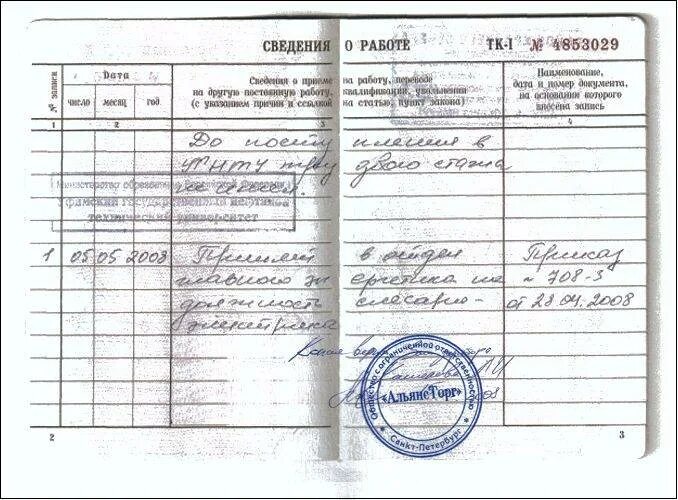 СВЕДЕНИЯ О РАБОТЕ ТК-I № 4853029
№ записи
Дата
число месяц год
Сведения о приеме на работу, переводе
на другую постоянную работу, квалификации, увольнении
(с указанием причин и ссылкой на статью, пункт закона)
Наименование,
дата и номер документа,
на основании которого
внесена запись
1 2 3 4
До поступления в
УГНТУ трудового стажа
не имеет.
Министерство образования Российской Федерации
Уфимский государственный нефтяной
технический университет
1 05 05 2008 Принят в отдел Приказ
главного энергетика на № 708-З
должность слесаря- от 28.04.2008
электрика
Общество с ограниченной ответственностью
«АльянсТорг»
Санкт-Петербург
2 3